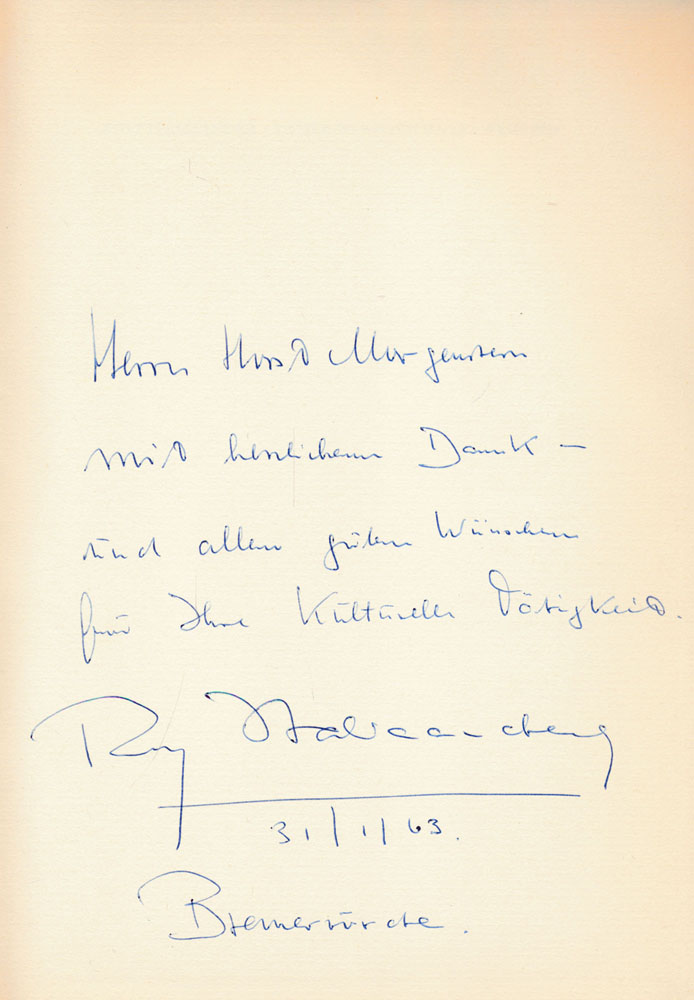 Herrn Horst Morgenstern
mit herzlichem Dank –
und allen guten Wünschen
für Ihre Kulturelle Tätigkeit.
Rolf Italiaander
31/1/63.
Bremervörde.